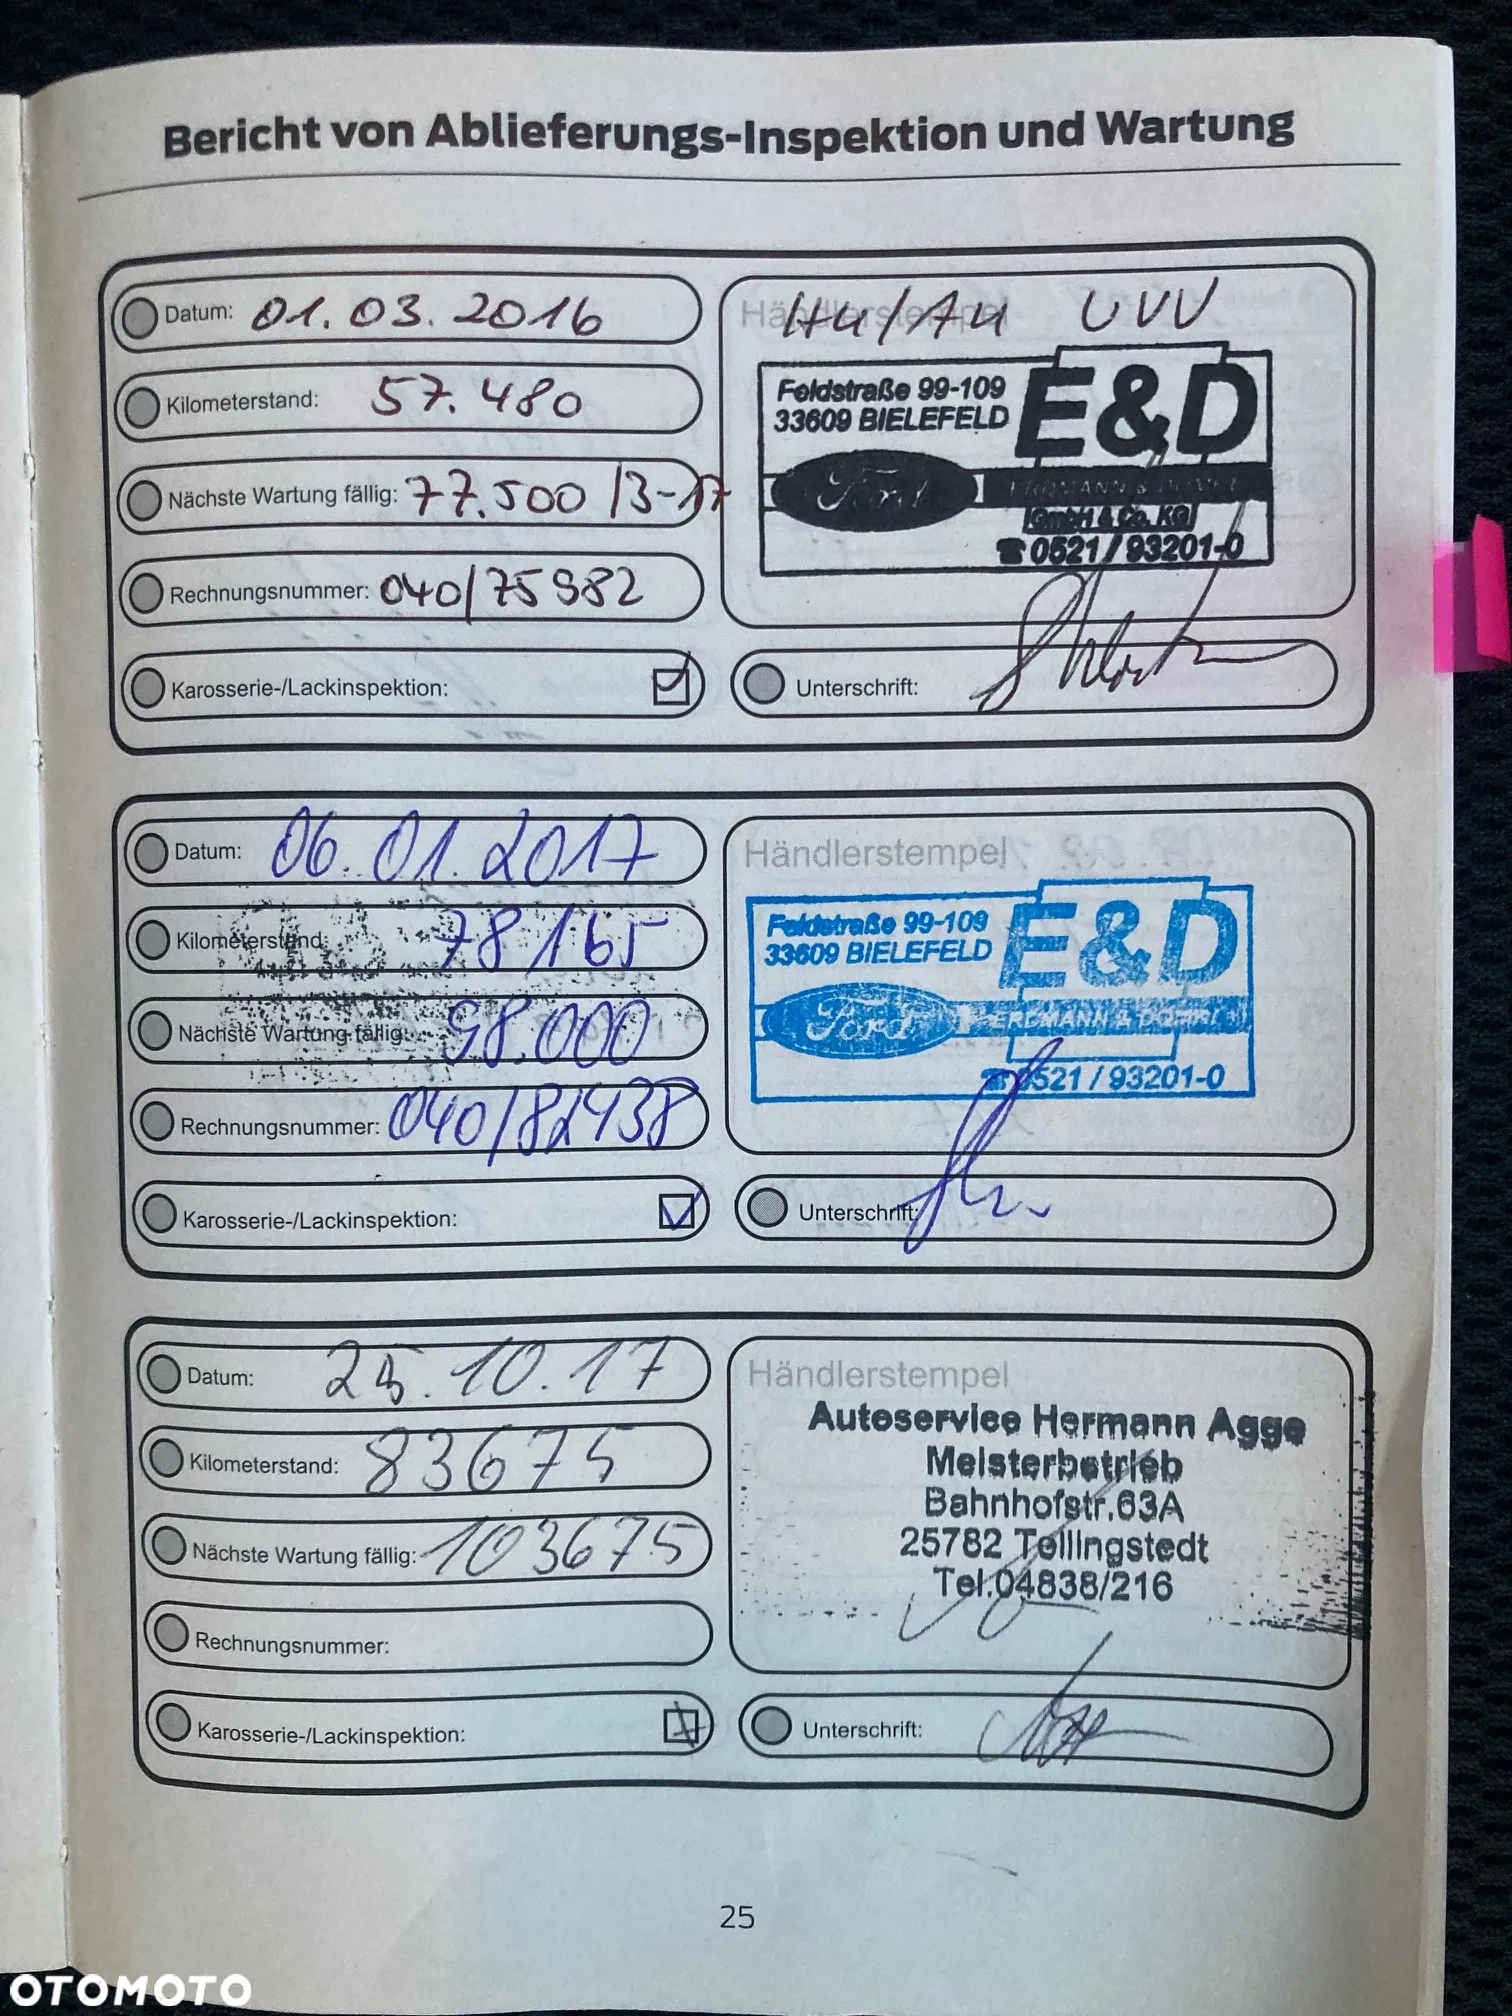 Bericht von Ablieferungs-Inspektion und Wartung
Datum: 01.03.2016
Kilometerstand: 57.480
Nächste Wartung fällig: 77.500 /3-17
Rechnungsnummer: 040/75982
Karosserie-/Lackinspektion:
Händlerstempel
HU/AU UVV
Feldstraße 99-109
33609 BIELEFELD
E&D
Ford
ERDMANN &
GmbH & Co. KG
☎ 0521 / 93201-0
Unterschrift:
Datum: 06.01.2017
Kilometerstand: 78165
Nächste Wartung fällig: 98.000
Rechnungsnummer: 040/82438
Karosserie-/Lackinspektion:
Händlerstempel
Feldstraße 99-109
33609 BIELEFELD
E&D
Ford
ERDMANN &
☎ 0521 / 93201-0
Unterschrift:
Datum: 25.10.17
Kilometerstand: 83675
Nächste Wartung fällig: 103675
Rechnungsnummer:
Karosserie-/Lackinspektion:
Händlerstempel
Autoservice Hermann Agge
Meisterbetrieb
Bahnhofstr.63A
25782 Tellingstedt
Tel.04838/216
Unterschrift:
25
OTOMOTO